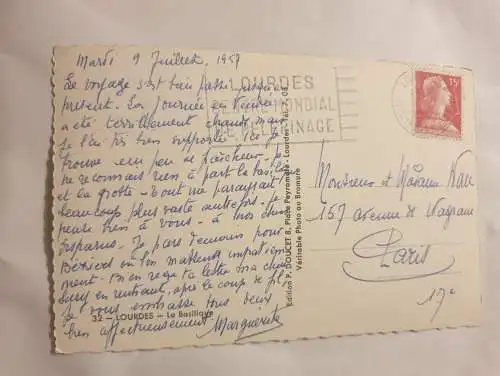 Mardi 9 Juillet 1957
Le voyage s'est bien passé jusqu'à
présent. La journée en
a été terriblement chaude mais
je l'ai très bien supportée. Ici je
trouve un peu de fraîcheur. Je
ne reconnais rien à part la basilique
et la grotte - tout me paraissait
beaucoup plus vaste autrefois. Je
pense bien à vous - à nos chers
Je pars demain pour
où l'on m'attend impatiem
ment. On a reçu ta lettre ma chère
en rentrant, après le coup de fil.
Je vous embrasse tous deux
bien affectueusement Marguerite
32 - LOURDES - La Basilique
LOURDES
MONDIAL
DE PELERINAGE
Edition P. DOUCET, 8, Place Peyramale - Lourdes - Tél. 7.08
Véritable Photo au Bromure
15F
Monsieur et Madame
157 avenue de Wagram
Paris
17e